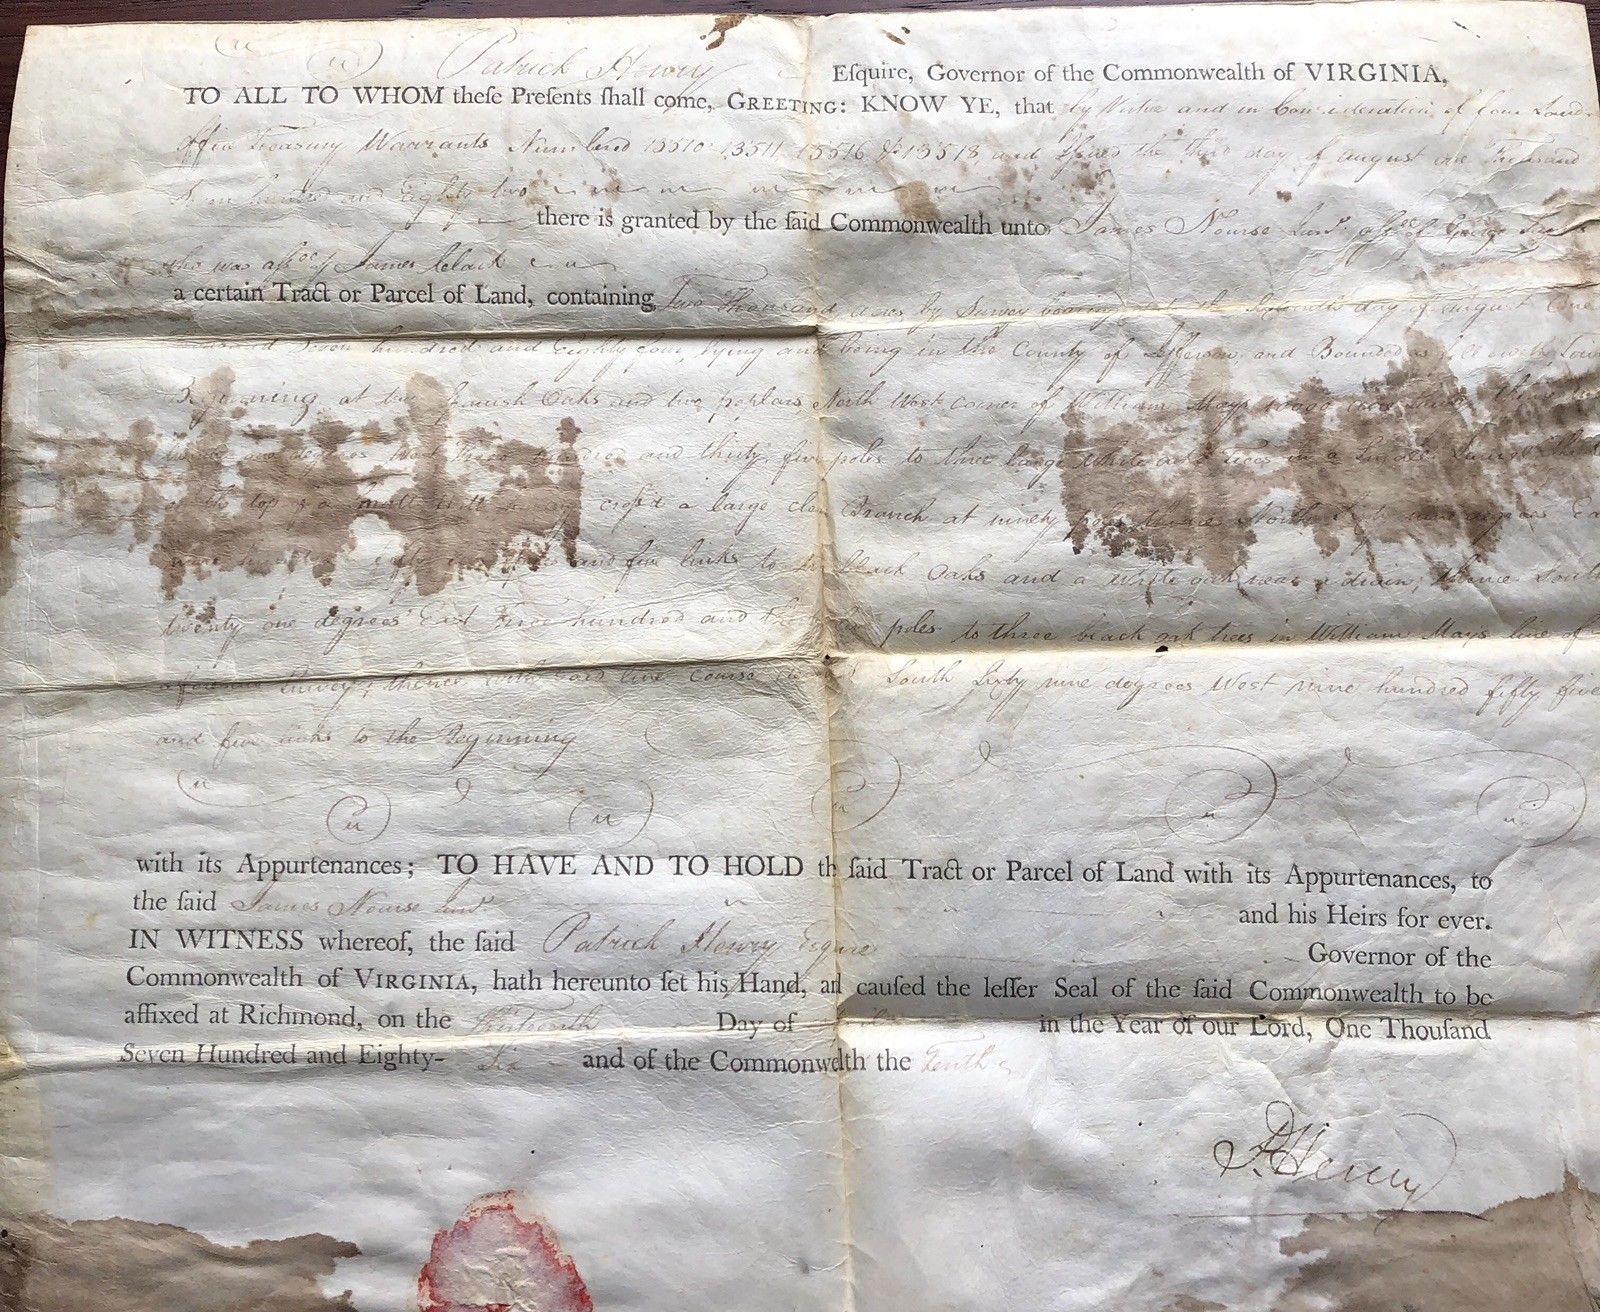 Patrick Henry Eſquire, Governor of the Commonwealth of VIRGINIA,
TO ALL TO WHOM theſe Preſents ſhall come, GREETING: KNOW YE, that by Virtue and in Consideration of four Land
Office Treasury Warrants Numbered 13510. 13511. 13516 & 13518 and Issued the third day of august one Thousand
hundred and Eighty two
there is granted by the ſaid Commonwealth unto James Nourse Junr. assee. of George
who was assee. of James Clark
a certain Tract or Parcel of Land, containing Two Thousand acres by Survey bearing date the day of august one
thousand Seven hundred and Eighty four, lying and being in the County of Jefferson and Bounded as followeth, Towit
Beginning at two Spanish Oaks and two poplars North West corner of William Mays
one degrees West three hundred and thirty five poles to three large White oak trees in a Small
top of a crossd a large Branch at ninety poles thence North degrees Ea
nine hundred fifty and five links to black Oaks and a white oak near a drain; thence South
twenty one degrees East Three hundred and poles to three black oak trees in William Mays line of
Survey; thence with said line Course South Sixty nine degrees West nine hundred fifty five
and five links to the Beginning
with its Appurtenances; TO HAVE AND TO HOLD th ſaid Tract or Parcel of Land with its Appurtenances, to
the ſaid James Nourse Junr. and his Heirs for ever.
IN WITNESS whereof, the ſaid Patrick Henry Esquire Governor of the
Commonwealth of VIRGINIA, hath hereunto ſet his Hand, and cauſed the leſſer Seal of the ſaid Commonwealth to be
affixed at Richmond, on the Day of in the Year of our Lord, One Thouſand
Seven Hundred and Eighty- Six and of the Commonwelth the Tenth
P. Henry